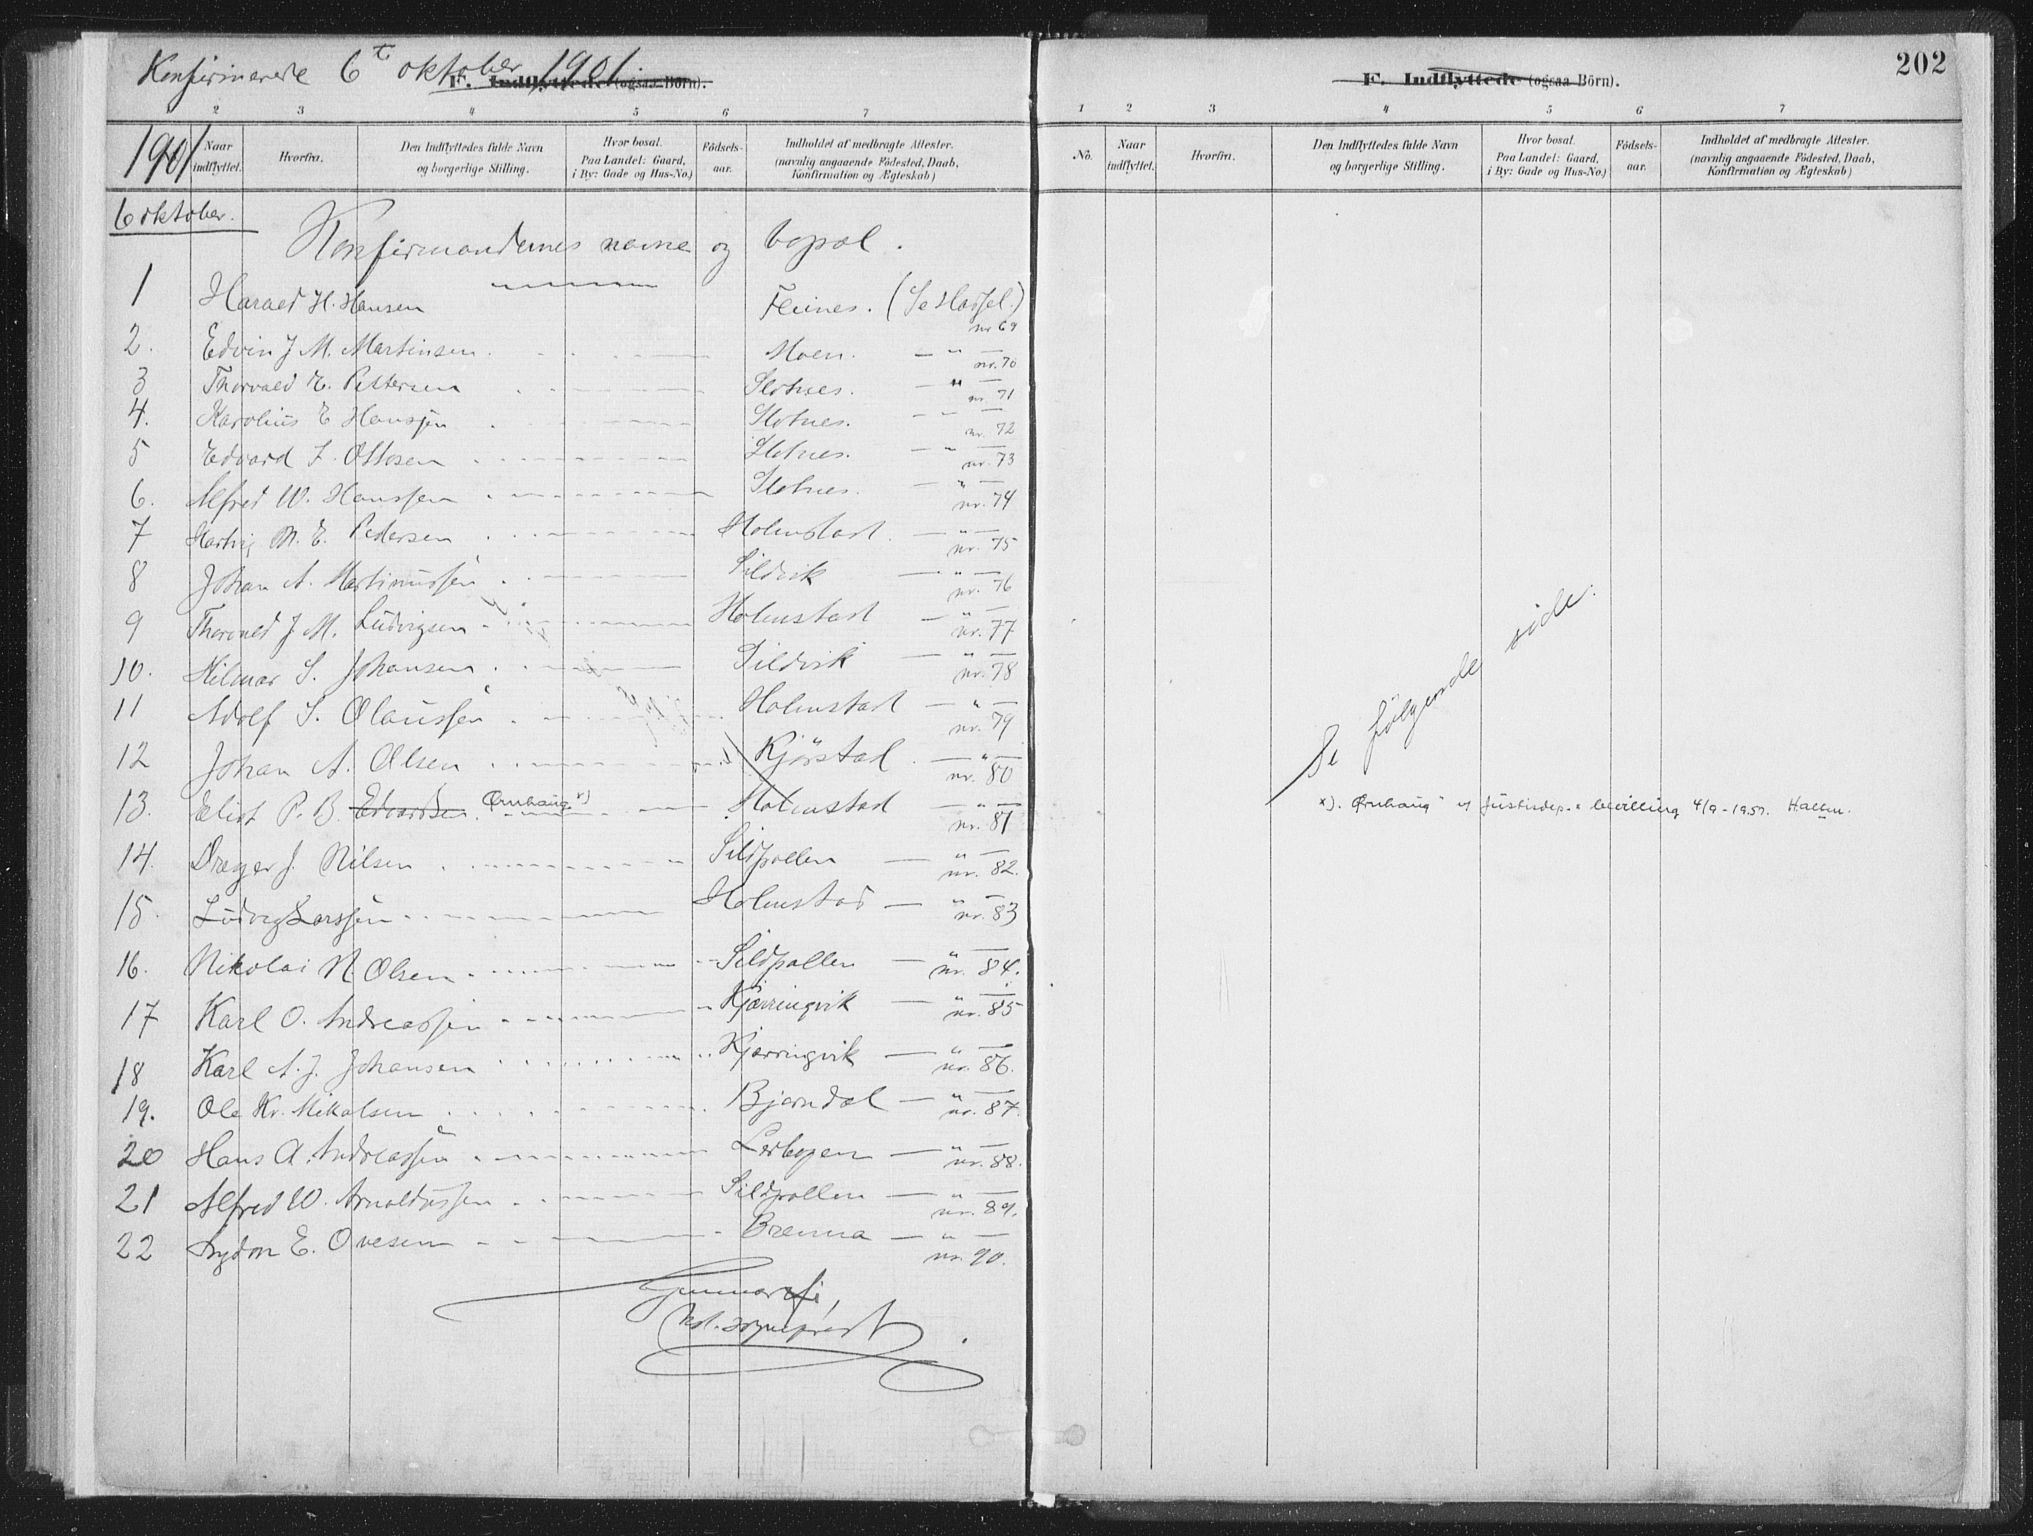 Konfirmerede 6te oktober 1901.
F. Indflyttede (ogsaa Börn).
2 3 4 5 6 7
1901
Naar indflyttet.
Hvorfra.
Den Indflyttedes fulde Navn og borgerlige Stilling.
Hvor bosat. Paa Landet: Gaard, i By: Gade og Hus-No.)
Fødsels-aar.
Indholdet af medbragte Attester. (navnlig angaaende Födested, Daab, Konfirmation og Ægteskab)
6 oktober.
Konfirmandernes navne og bopæl.
1 Harald H. Hansen Fleines. (Se Hassel.) nr 69
2. Edvin J M. Martinsen. Moen. — " — nr. 70
3 Thorvald E. Pettersen Slotnes. — " — nr. 71
4. Karolius E Hanssen Slotnes. — " — nr. 72
5 Edvard J. Ottosen Slotnes. — " — nr. 73
6. Alfred W. Hanssen Slotnes. — " — nr. 74
7 Hartvig M. E. Pedersen Holmstad. — " — nr. 75
8 Johan A. Martinussen Sildvik — " — nr. 76
9 Thorvald J M. Ludvigsen Holmstad — " — nr. 77
10. Hilmar S. Johansen Sildvik — " — nr. 78
11 Adolf S. Olaussen Holmstad — " — nr. 79
12 Johan A. Olsen Kjørstad. — " — nr. 80
13. Eliot P. B. Edvardsen. Ørnhaug x) Holmstad — " — nr. 81
14. Drager J. Nilsen Sildpollen — " — nr. 82.
15. Ludvig Larssen Holmstad — " — nr. 83
16. Nikolai N. Olsen Sildpollen — " — nr. 84.
17 Karl O. Andreassen Kjerringvik — " — nr. 85
18 Karl A. J. Johansen Kjerringvik — " — nr. 86.
19. Ole Kr. Mikalsen Bjørndal — " — nr. 87.
20 Hans A. Andreassen Lerbogen — " — nr. 88.
21 Alfred W. Arnoldussen Sildpollen — " — nr. 89.
22 Trygdon E. Ovesen Brenna — " — nr. 90.
sogneprest
202
F. Indflyttede (ogsaa Börn).
1 2 3 4 5 6 7
No.
Naar indflyttet.
Hvorfra.
Den Indflyttedes fulde Navn og borgerlige Stilling.
Hvor bosat. Paa Landet: Gaard, i By: Gade og Hus-No.)
Fødsels-aar.
Indholdet af medbragte Attester. (navnlig angaaende Födested, Daab, Konfirmation og Ægteskab)
Se følgende side.
x). Ørnhaug" e/ Justisdep.s bevilling 4/9-1957. Halten.